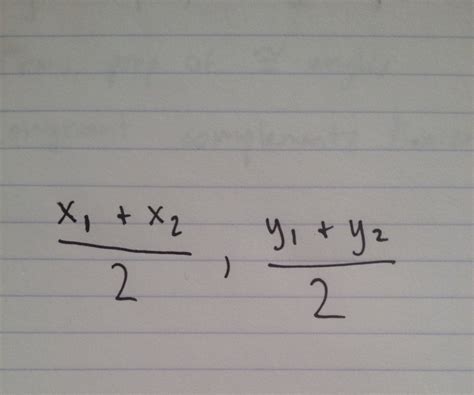 x₁ + x₂ / 2 , y₁ + y₂ / 2